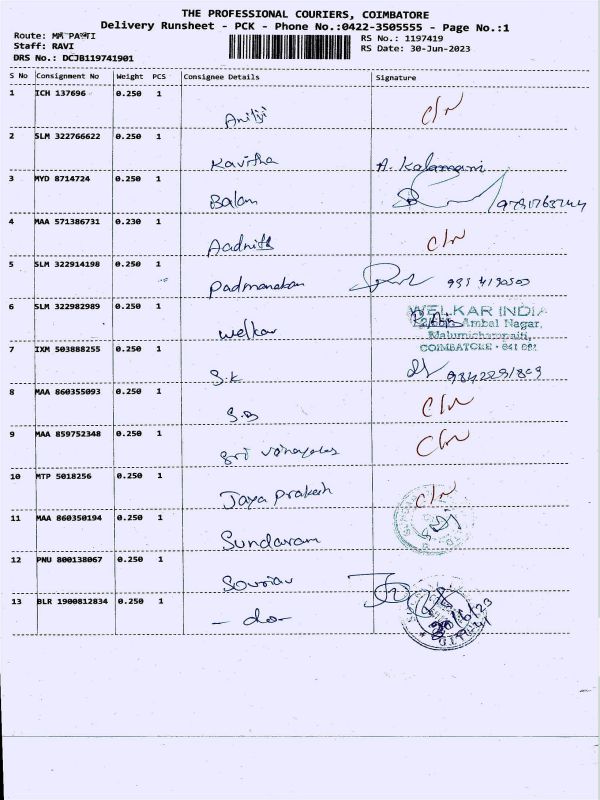 THE PROFESSIONAL COURIERS, COIMBATORE
Delivery Runsheet - PCK - Phone No.:0422-3505555 - Page No.:1
Route:
RS No.: 1197419
Staff: RAVI
RS Date: 30-Jun-2023
DRS No.: DCJB119741901
S No Consignment No Weight PCS Consignee Details Signature
1 ICH 137696 0.250 1 C/N
2 SLM 322766622 0.250 1 Kavitha A. Kalamani
3 MYD 8714724 0.250 1 Balan
4 MAA 571386731 0.230 1 Aadnith C/N
5 SLM 322914198 0.250 1 Padmanaban
6 SLM 322982989 0.250 1 Welkar WELKAR INDIA
Ambal Nagar,
Malumichampatti,
COIMBATORE - 641 021
7 IXM 503888255 0.250 1 S.K
8 MAA 860355093 0.250 1 S.B C/N
9 MAA 859752348 0.250 1 Sri Vinayagas C/N
10 MTP 5018256 0.250 1 Jaya Prakash C/N
11 MAA 860350194 0.250 1 Sundaram
12 PNU 800138067 0.250 1 Souriav
13 BLR 1900812834 0.250 1 - do - 30/6/23